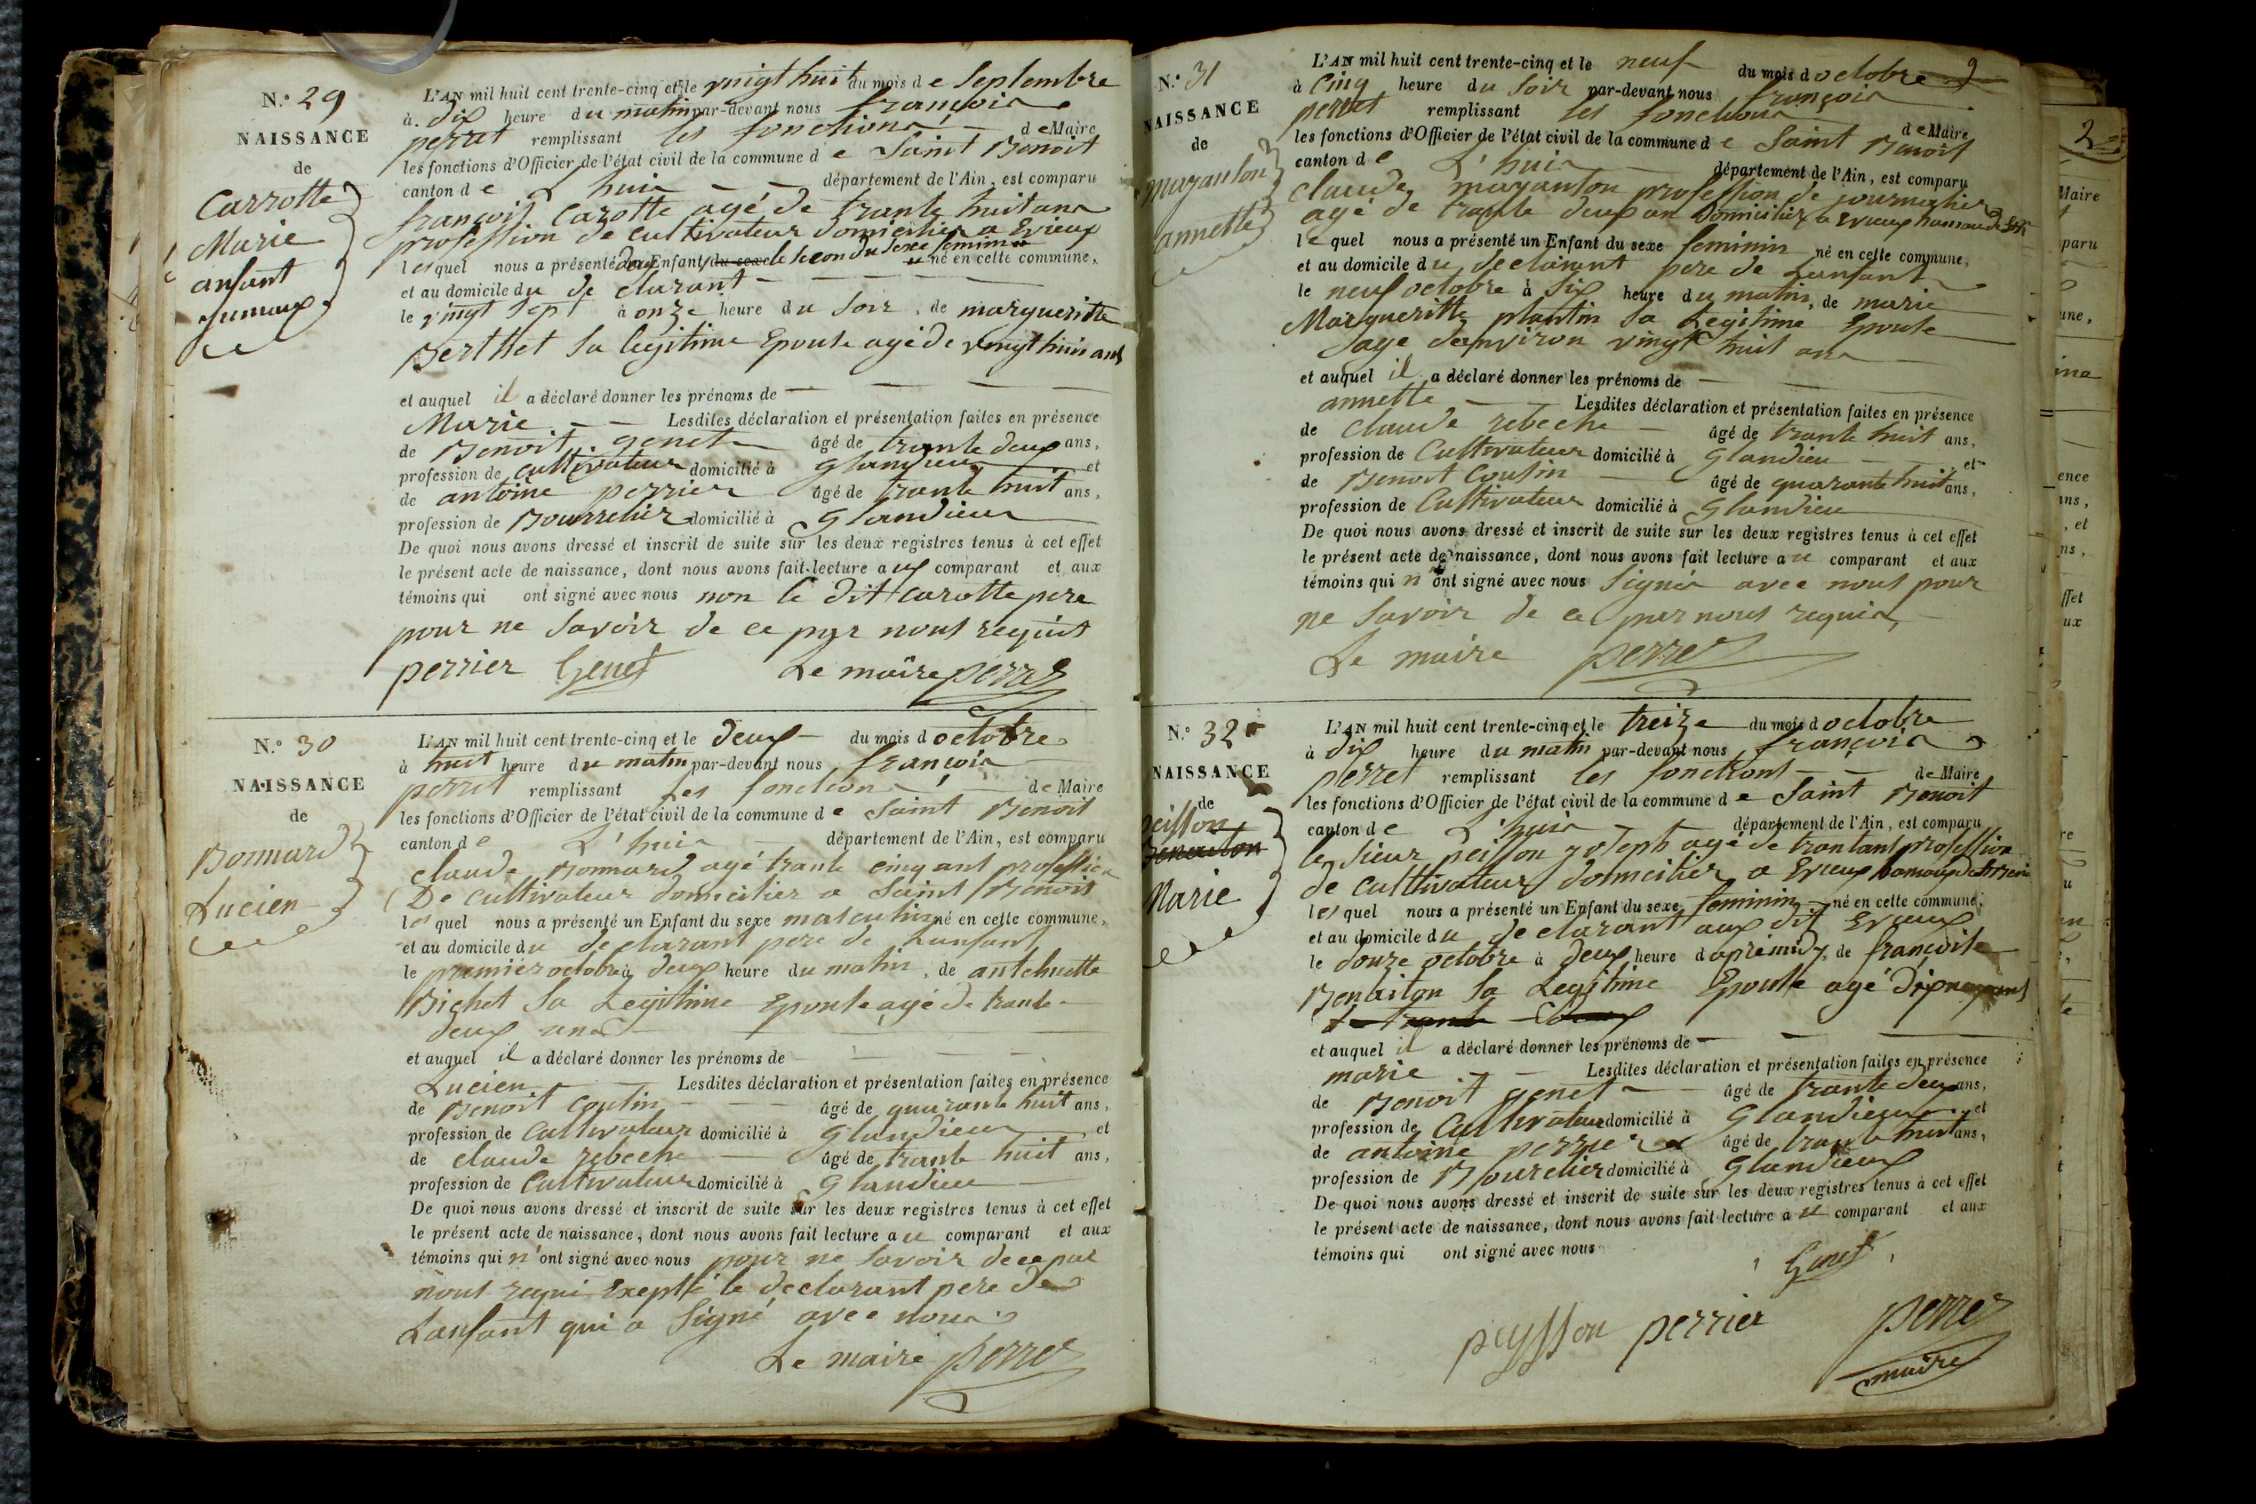 N.° 29
NAISSANCE
de
Carrotte
Marie
anfant
jumaux
L'AN mil huit cent trente-cinq et le vingt huit du mois de Septembre
à dix heure du matin par-devant nous françois
perret remplissant les fonctions de Maire
les fonctions d'Officier de l'état civil de la commune de Saint Benoit
canton de L'huis département de l'Ain, est comparu
françois Carotte agé de trante huit ans
profession de cultivateur domicilier a Evieux
lesquel nous a présenté deux Enfant du sexe le second du Sexe feminin né en cette commune,
et au domicile du declarant
le vingt sept à onze heure du Soir, de margueritte
Berthet Sa legitime Epouse agé de vingt huit ans
et auquel il a déclaré donner les prénoms de
Marie Lesdites déclaration et présentation faites en présence
de Benoit genet âgé de trante deux ans,
profession de Cultivateur domicilié à Glandieu et
de antoine perrier âgé de trante huit ans,
profession de Bourrelier domicilié à Glandieu
De quoi nous avons dressé et inscrit de suite sur les deux registres tenus à cet effet
le présent acte de naissance, dont nous avons fait lecture aux comparant et aux
témoins qui ont signé avec nous non le dit Carotte pere
pour ne Savoir de ce par nous requist
perrier Genet Le maire perret
N.° 30
NAISSANCE
de
Bonnard
Lucien
L'AN mil huit cent trente-cinq et le deux du mois d octobre
à huit heure du matin par-devant nous françois
perret remplissant Les fonctions de Maire
les fonctions d'Officier de l'état civil de la commune de Saint Benoit
canton de L'huis département de l'Ain, est comparu
claude Bonnard agé trante cinq ans profession
De cultivateur domicilier a Saint Benoit
lesquel nous a présenté un Enfant du sexe masculin né en cette commune,
et au domicile du declarant pere de Lanfant
le premier octobre à deux heure du matin, de antelmette
Bichet Sa Legitime Epouse agé de trante
deux ans
et auquel il a déclaré donner les prénoms de
Lucien Lesdites déclaration et présentation faites en présence
de Benoit Cousin âgé de quarante huit ans,
profession de Cultivateur domicilié à Glandieu et
de claude rebeche âgé de trante huit ans,
profession de Cultivateur domicilié à Glandieu
De quoi nous avons dressé et inscrit de suite sur les deux registres tenus à cet effet
le présent acte de naissance, dont nous avons fait lecture au comparant et aux
témoins qui n'ont signé avec nous pour ne Savoir de ce par
nous requi Exepté le declarant pere de
Lanfant qui a Signé avec nous
Le maire perret
N.° 31
NAISSANCE
de
mazanton
annette
9
L'AN mil huit cent trente-cinq et le neuf du mois d octobre
à Cinq heure du Soir par-devant nous françois
perret remplissant les fonctions de Maire
les fonctions d'Officier de l'état civil de la commune de Saint Benoit
canton de L'huis département de l'Ain, est comparu
claude mazanton profession de journalier
agé de trante deux an Domicilier a Evieux hamau de
lequel nous a présenté un Enfant du sexe feminin né en cette commune,
et au domicile du declarant pere de Lanfant
le neuf octobre à Six heure du matin, de marie
Margueritte plantin Sa Legitime Epouse
dage denviron vingt huit ans
et auquel il a déclaré donner les prénoms de
annette Lesdites déclaration et présentation faites en présence
de claude rebeche âgé de trante huit ans,
profession de Cultivateur domicilié à Glandieu et
de Benoit Cousin âgé de quarante huit ans,
profession de Cultivateur domicilié à Glandieu
De quoi nous avons dressé et inscrit de suite sur les deux registres tenus à cet effet
le présent acte de naissance, dont nous avons fait lecture au comparant et aux
témoins qui n'ont signé avec nous Signés avec nous pour
ne Savoir de ce par nous requis
Le maire perret
N.° 32
NAISSANCE
de
peisson
Benaiton
Marie
L'AN mil huit cent trente-cinq et le treize du mois d octobre
à dix heure du matin par-devant nous françois
perret remplissant les fonctions de Maire
les fonctions d'Officier de l'état civil de la commune de Saint Benoit
canton de L'huis département de l'Ain, est comparu
le Sieur peisson joseph agé de trantans profession
de cultivateur domicilier a Evieux
lesquel nous a présenté un Enfant du sexe feminin né en cette commune,
et au domicile du declarant aux dit Evieux
le douze octobre à deux heure d apremidy, de françoise
Benaiton Sa Legitime Epouse agé
et auquel il a déclaré donner les prénoms de
marie Lesdites déclaration et présentation faites en présence
de Benoit genet âgé de trante deux ans,
profession de Cultivateur domicilié à Glandieu et
de antoine perrier âgé de trante huit ans,
profession de Bourelier domicilié à Glandieux
De quoi nous avons dressé et inscrit de suite sur les deux registres tenus à cet effet
le présent acte de naissance, dont nous avons fait lecture au comparant et aux
témoins qui ont signé avec nous
Genet
peysson perrier perret
maire
2